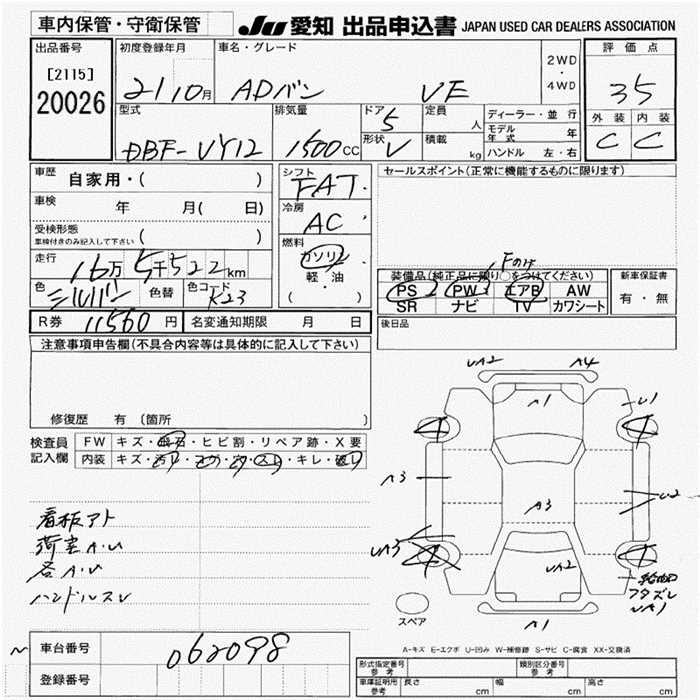 車内保管・守衛保管
JU 愛知 出品申込書 JAPAN USED CAR DEALERS ASSOCIATION
出品番号
[2115]
20026
初度登録年月
21 10月
車名・グレード
ADバン VE
2WD
・
4WD
評価点
35
外装 内装
C C
型式
DBF-VY12
排気量
1500CC
ドア 5
形状 V
定員 人
積載 kg
ディーラー・並行
モデル年式 年
ハンドル 左・右
車歴 自家用・( )
車検 年 月( 日)
受検形態
車検付きのみ記入して下さい ( )
走行 16万5千522km
色 シルバー 色替 色コード K23
シフト
FAT
冷房
AC
燃料
ガソリン
軽・油
( )
セールスポイント(正常に機能するものに限ります)
装備品(純正品に限り○をつけてください)
PS PW エアB AW
SR ナビ TV カワシート
新車保証書
有・無
R券 11560円 名変通知期限 月 日
後日品
注意事項申告欄(不具合内容等は具体的に記入して下さい)
修復歴 有 (箇所 )
検査員記入欄
FW キズ・飛石・ヒビ割・リペア跡・X要
内装 キズ・汚れ・コゲ・穴・スレ・キレ・破れ
看板アト
荷室A.U
各A.U
ハンドルスレ
UA2 A4
A1
U1
A3
A3
U2
UA3
UA2
UA1
A1
スペア
A-キズ E-エクボ U-凹み W-補修跡 S-サビ C-腐食 XX-交換済
車台番号 062098
登録番号
形式指定番号 参考
類別区分番号 参考
車庫証明用 参考 長さ cm 幅 cm 高さ cm